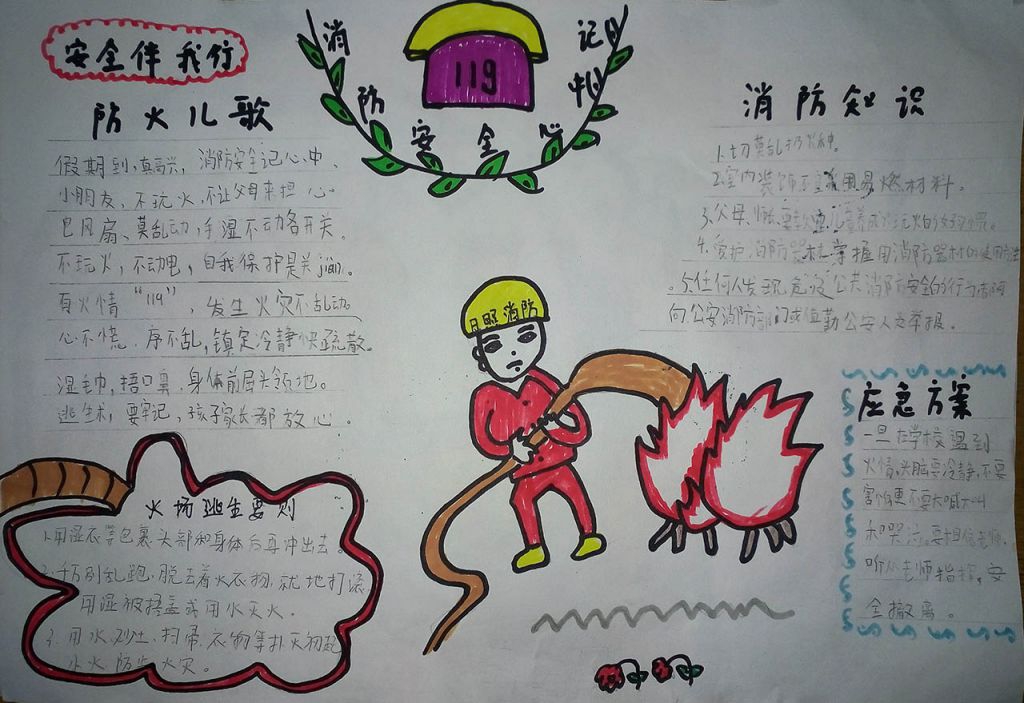 安全伴我行
消防安全记心中
119
防火儿歌
假期到,真高兴,消防安全记心中,
小朋友,不玩火,不让父母来担心。
电风扇,莫乱动,手湿不动各开关。
不玩火,不动电,自我保护是关jiàn。
有火情“119”,发生火灾不乱动
心不慌,序不乱,镇定冷静快疏散。
湿毛巾,捂口鼻,身体前屈头领地。
逃生术,要牢记,孩子家长都放心。
消防知识
1.切莫乱扔火种。
2.室内装饰不宜采用易燃材料。
3.父母、师长要教育儿童养成不玩火的好习惯。
4.爱护消防器材,掌握用消防器材的使用方法
5.任何人发现危及公共消防安全的行为
向公安消防部门或值勤公安人员举报。
日照消防
应急方案
一旦在学校遇到
火情,头脑要冷静,不要
害怕更不要大喊大叫
和哭泣。要相信老师,
听从老师指挥,安
全撤离。
火场逃生要则
1.用湿衣等包裹头部和身体后再冲出去。
2.千万别乱跑,脱去着火衣物,就地打滚,
用湿被捂盖或用水灭火。
3.用水、沙土、扫帚、衣物等扑灭初起
小火,防止火灾。